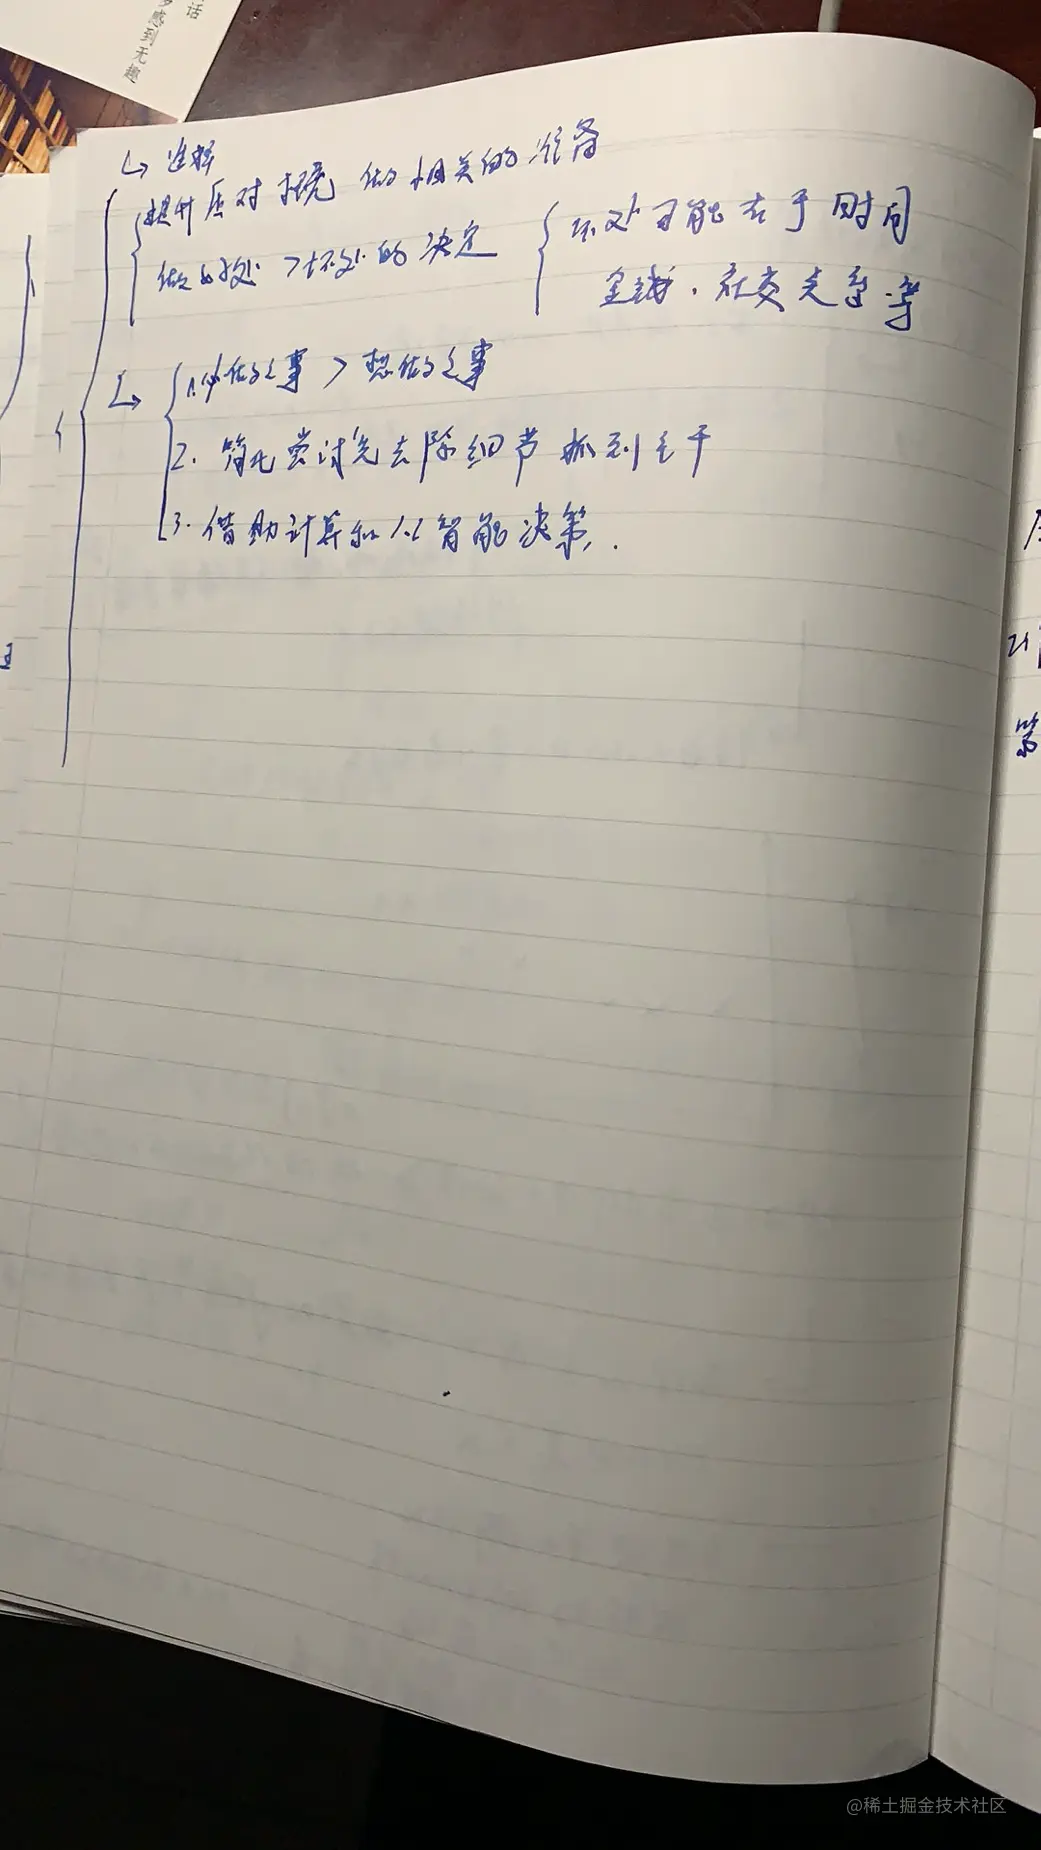 话
感到无趣
↳ 选择
提升应对 做相关的准备
做好处>坏处的决定
坏处可能在于时间
金钱、社交
↳
1. 做之事 > 想做之事
2. 简化尝试先去除细节抓到主干
3. 借助计算和人工智能决策.
第
@稀土掘金技术社区